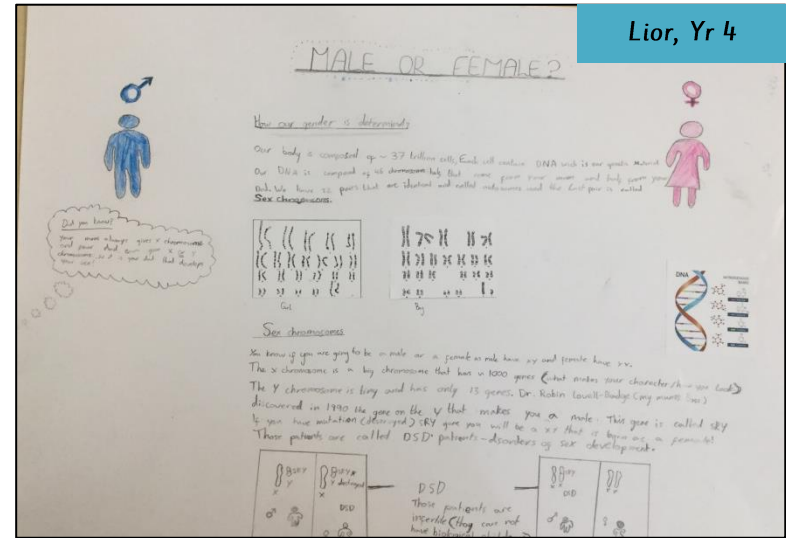 Lior, Yr 4
MALE OR FEMALE?
How our gender is determind?
Did you know?
your mum always gives X chromosome
and your dad give you X or Y
chromosome, so it is your dad that
your sex!
Our body is composed of ~ 37 trillion cells, Each cell contain DNA which is our genetic material
Our DNA is composed of 46 half that come from our mum and half from your
Dad. We have 22 pairs that are identical and called autosomes and the last pair is called
Sex chromosomes.
Girl
Boy
DNA
Sex chromosomes
You know if you are going to be a male or a female as male have XY and female have XX.
The X chromosome is a big chromosome that has ~ 1000 genes (what makes your character/how you look)
The Y chromosome is tiny and has only 13 genes. Dr. Robin Lovell-Badge (my mum's boss)
discovered in 1990 the gene on the Y that makes you a male. This gene is called SRY
If you have mutation (destroyed) SRY gene you will be a XY that is a female!
Those patients are called DSD patients - disorders of sex development.
SRY
Y
X
SRY
Y destroyed
X
DSD
DSD
Those patients are
infertile (they can not
have biological
SRY
DSD